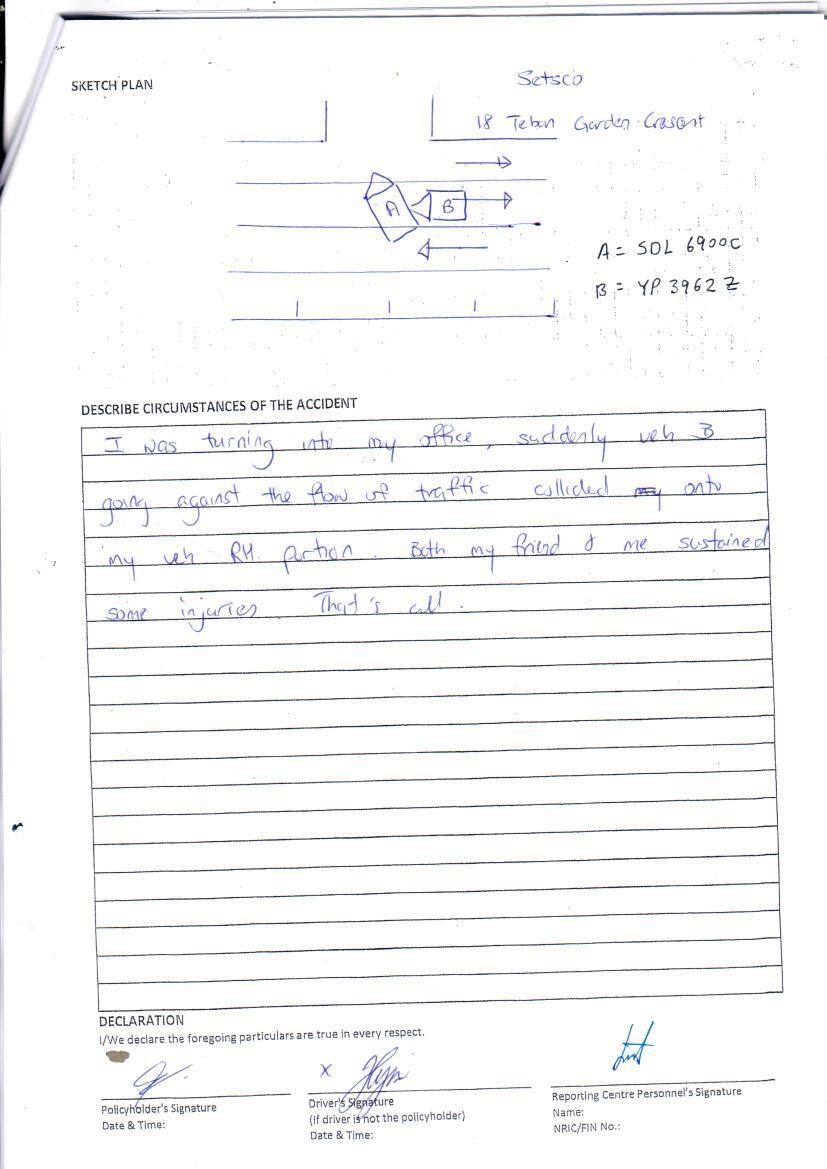 Setsco
SKETCH PLAN
18 Teban Garden Crescent
A B
A = SDL 6900C
B = YP 3962 Z
DESCRIBE CIRCUMSTANCES OF THE ACCIDENT
I was turning into my office, suddenly veh B
going against the flow of traffic collided my onto
my veh RH portion. Both my friend & me sustained
some injuries. That's all.
DECLARATION
I/We declare the foregoing particulars are true in every respect.
X
Policyholder's Signature
Date & Time:
Driver's Signature
(If driver is not the policyholder)
Date & Time:
Reporting Centre Personnel's Signature
Name:
NRIC/FIN No.: